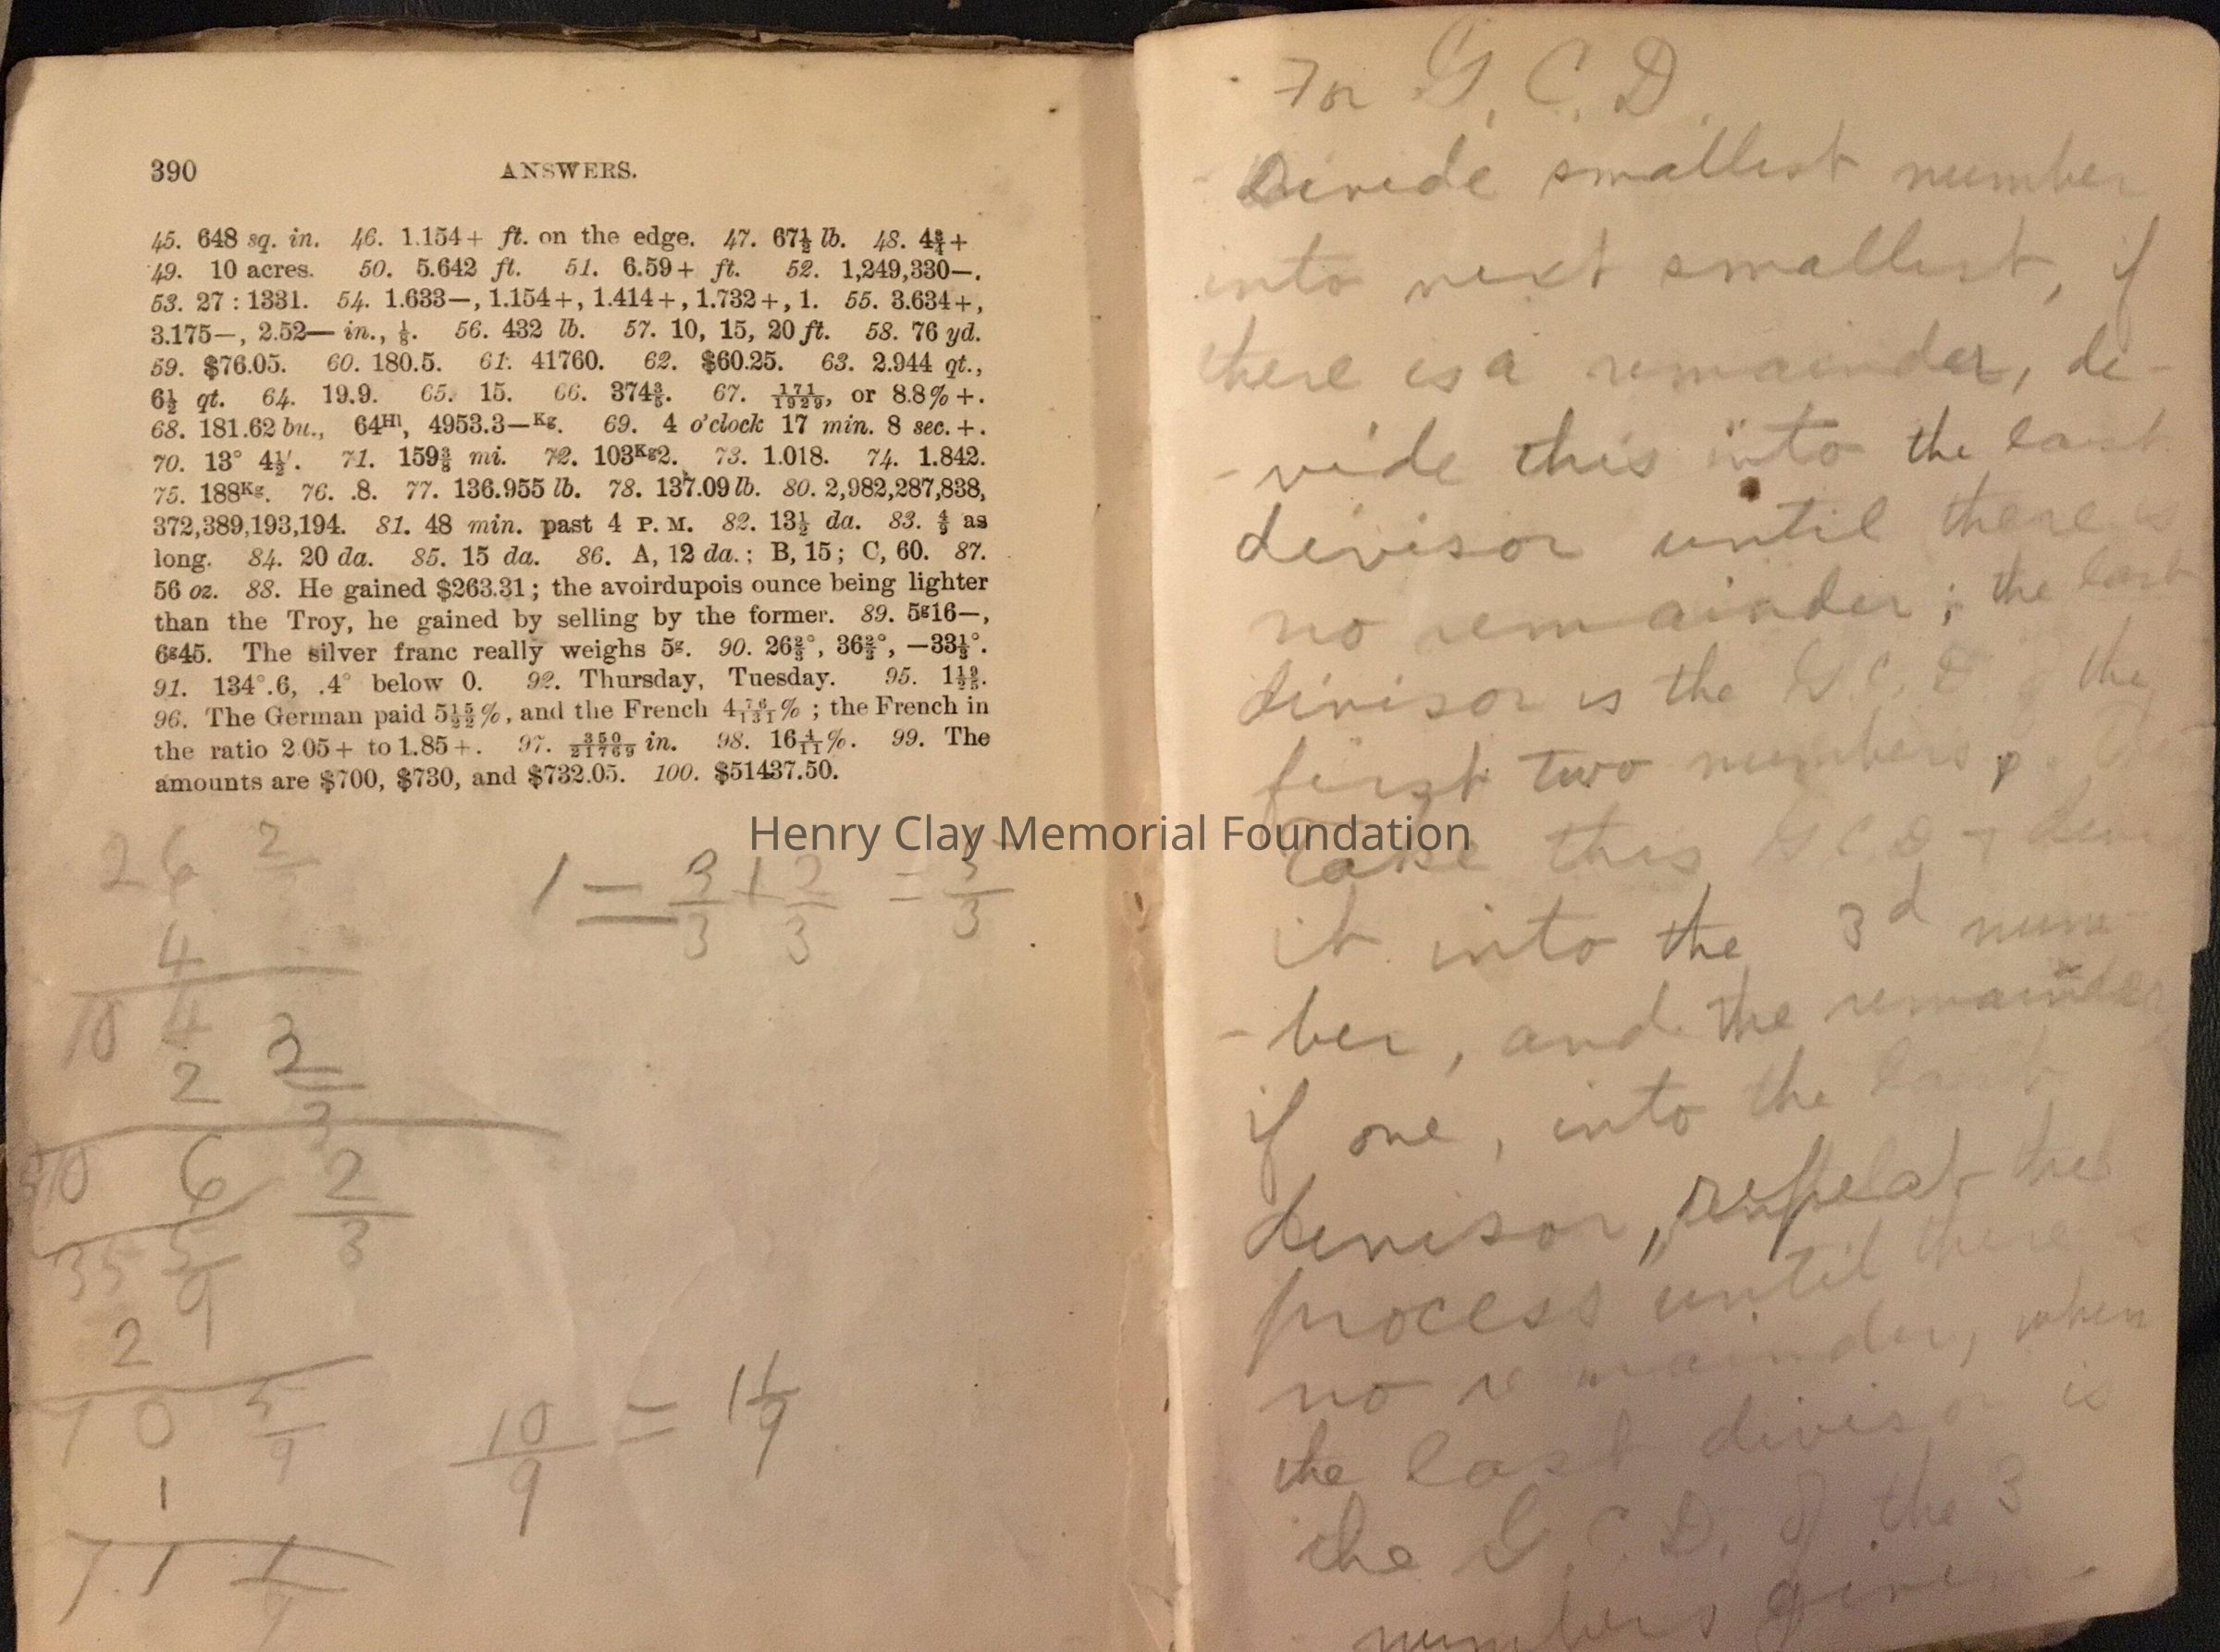 390 ANSWERS.
45. 648 sq. in. 46. 1.154+ ft. on the edge. 47. 67½ lb. 48. 4¾+
49. 10 acres. 50. 5.642 ft. 51. 6.59+ ft. 52. 1,249,330—.
53. 27 : 1331. 54. 1.633—, 1.154+, 1.414+, 1.732+, 1. 55. 3.634+,
3.175—, 2.52— in., ⅛. 56. 432 lb. 57. 10, 15, 20 ft. 58. 76 yd.
59. $76.05. 60. 180.5. 61. 41760. 62. $60.25. 63. 2.944 qt.,
6½ qt. 64. 19.9. 65. 15. 66. 374⅗. 67. 171/1929, or 8.8%+.
68. 181.62 bu., 64Hl, 4953.3—Kg. 69. 4 o'clock 17 min. 8 sec.+.
70. 13° 4½'. 71. 159⅜ mi. 72. 103Kg2. 73. 1.018. 74. 1.842.
75. 188Kg. 76. .8. 77. 136.955 lb. 78. 137.09 lb. 80. 2,982,287,838,
372,389,193,194. 81. 48 min. past 4 P. M. 82. 13½ da. 83. 4/9 as
long. 84. 20 da. 85. 15 da. 86. A, 12 da.; B, 15; C, 60. 87.
56 oz. 88. He gained $263.31; the avoirdupois ounce being lighter
than the Troy, he gained by selling by the former. 89. 5g16—,
6g45. The silver franc really weighs 5g. 90. 26⅔°, 36⅔°, —33⅓°.
91. 134°.6, .4° below 0. 92. Thursday, Tuesday. 95. 1 13/25.
96. The German paid 5 15/22%, and the French 4 76/131%; the French in
the ratio 2.05+ to 1.85+. 97. 350/21769 in. 98. 16 4/11%. 99. The
amounts are $700, $730, and $732.05. 100. $51437.50.
26 2
4
10 4
2 2/3
6 2/3
35 5/9
2
70 5/9
1
71 1/9
1 = 3/3 + 2/3 = 5/3
10/9 = 1 1/9
Henry Clay Memorial Foundation
For G. C. D.
Divide smallest number
into next smallest, if
there is a remainder, di-
-vide this into the last
divisor until there is
no remainder; the last
divisor is the G. C. D the
first two numbers.
Take this G C D + divi
it into the 3d num
-ber, and the remainder
if one, into the last
divisor, repeat the
process until there is
no remainder, when
the last divisor is
the G. C. D. of the 3
numbers given.